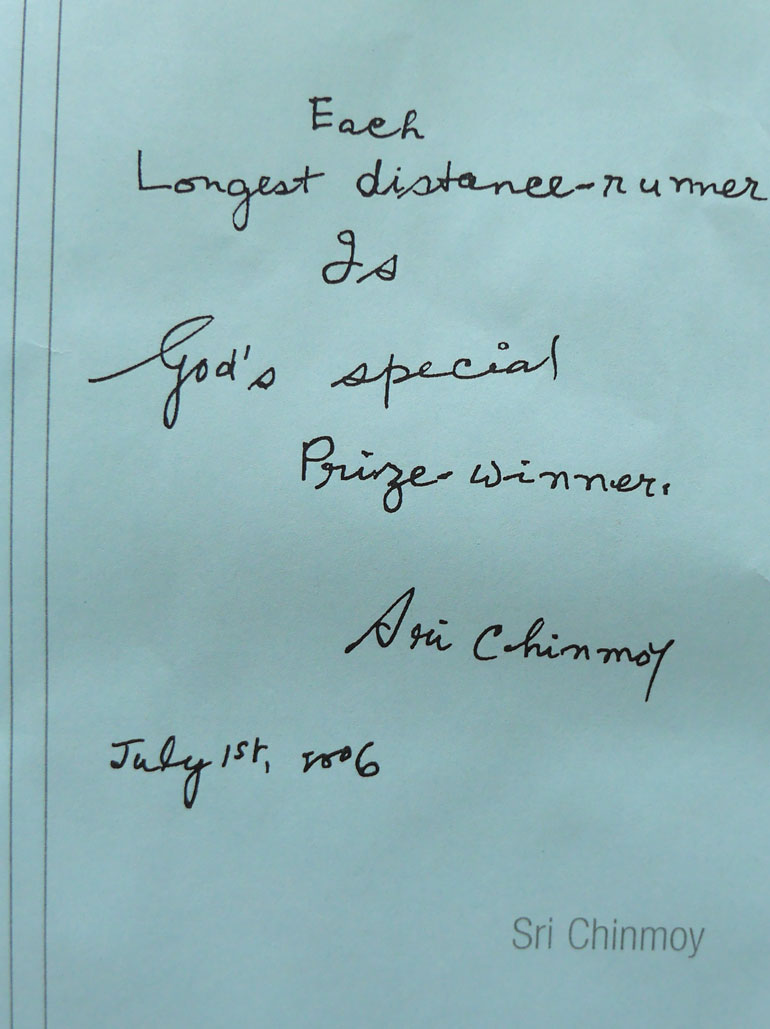 Each
Longest distance-runner
Is
God's special
Prize-winner.
Sri Chinmoy
July 1st, 2006
Sri Chinmoy